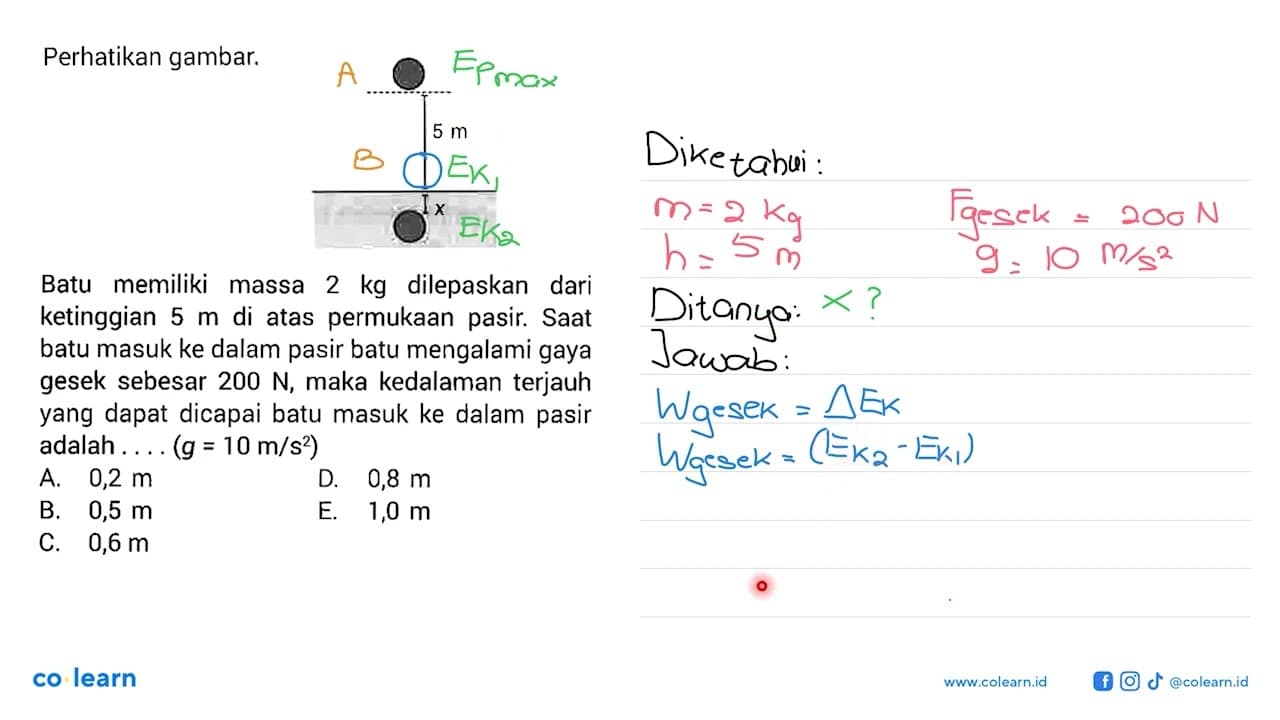 Perhatikan gambar.
A
Epmax
5 m
B
EK1
x
EK2
Batu memiliki massa 2 kg dilepaskan dari
ketinggian 5 m di atas permukaan pasir. Saat
batu masuk ke dalam pasir batu mengalami gaya
gesek sebesar 200 N, maka kedalaman terjauh
yang dapat dicapai batu masuk ke dalam pasir
adalah . . . . (g = 10 m/s²)
A. 0,2 m
B. 0,5 m
C. 0,6 m
D. 0,8 m
E. 1,0 m
Diketahui:
m = 2 kg
Fgesek = 200 N
h = 5 m
g = 10 m/s²
Ditanya: x ?
Jawab:
Wgesek = ΔEK
Wgesek = (EK2 - EK1)
co learn
www.colearn.id
@colearn.id